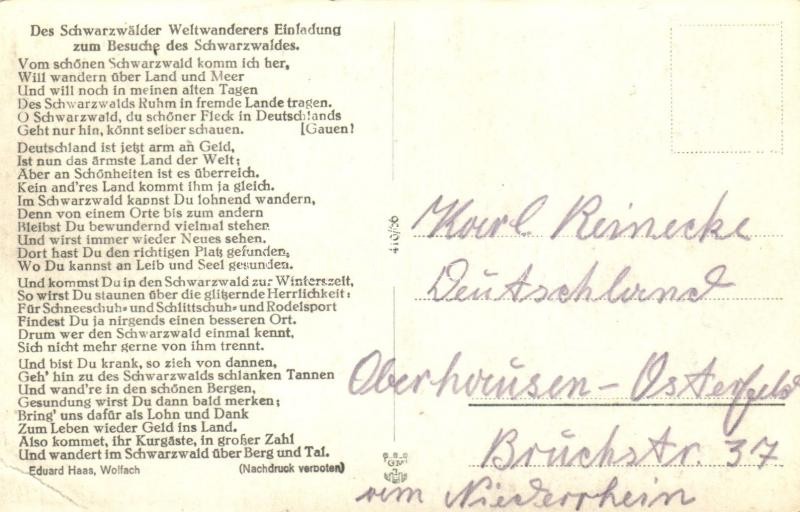 Des Schwarzwälder Weltwanderers Einladung
zum Besuche des Schwarzwaldes.
Vom schönen Schwarzwald komm ich her,
Will wandern über Land und Meer
Und will noch in meinen alten Tagen
Des Schwarzwalds Ruhm in fremde Lande tragen.
O Schwarzwald, du schöner Fleck in Deutschlands
Geht nur hin, könnt selber schauen. [Gauen!
Deutschland ist jetzt arm an Geld,
Ist nun das ärmste Land der Welt;
Aber an Schönheiten ist es überreich.
Kein and'res Land kommt ihm ja gleich.
Im Schwarzwald kannst Du lohnend wandern,
Denn von einem Orte bis zum andern
Bleibst Du bewundernd vielmal stehen
Und wirst immer wieder Neues sehen.
Dort hast Du den richtigen Platz gefunden,
Wo Du kannst an Leib und Seel gesunden.
Und kommst Du in den Schwarzwald zur Winterszeit,
So wirst Du staunen über die glitzernde Herrlichkeit:
Für Schneeschuh- und Schlittschuh- und Rodelsport
Findest Du ja nirgends einen besseren Ort.
Drum wer den Schwarzwald einmal kennt,
Sich nicht mehr gerne von ihm trennt.
Und bist Du krank, so zieh von dannen,
Geh' hin zu des Schwarzwalds schlanken Tannen
Und wand're in den schönen Bergen,
Gesundung wirst Du dann bald merken;
Bring' uns dafür als Lohn und Dank
Zum Leben wieder Geld ins Land.
Also kommet, ihr Kurgäste, in großer Zahl
Und wandert im Schwarzwald über Berg und Tal.
Eduard Haas, Wolfach (Nachdruck verboten)
410/56
Karl Reinecke
Deutschland
Oberhausen - Osterfeld
Bruchstr. 37
am Niederrhein